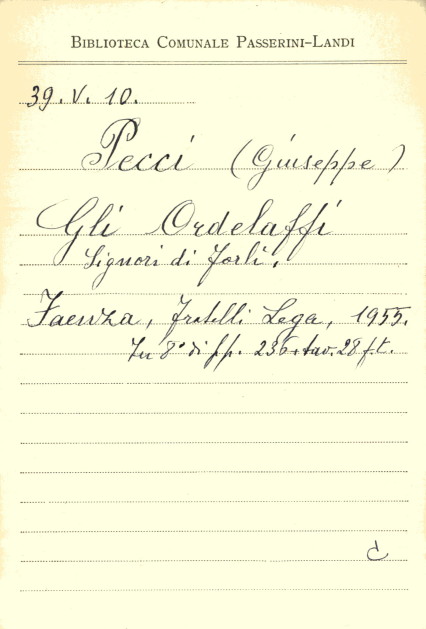 BIBLIOTECA COMUNALE PASSERINI-LANDI
39. V. 10.
Pecci (Giuseppe)
Gli Ordelaffi
Signori di Forlì.
Faenza, Fratelli Lega, 1955.
In 8° di pp. 236+tav. 28 f.t.